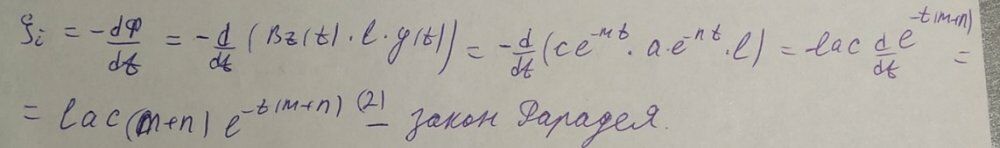 ξi = -dΦ/dt = -d/dt (Bz(t)·l·y(t)) = -d/dt (ce^-mt · a·e^-nt · l) = lac d/dt e^-t(m+n) =
= lac(m+n) e^-t(m+n) (2) - закон Фарадея.